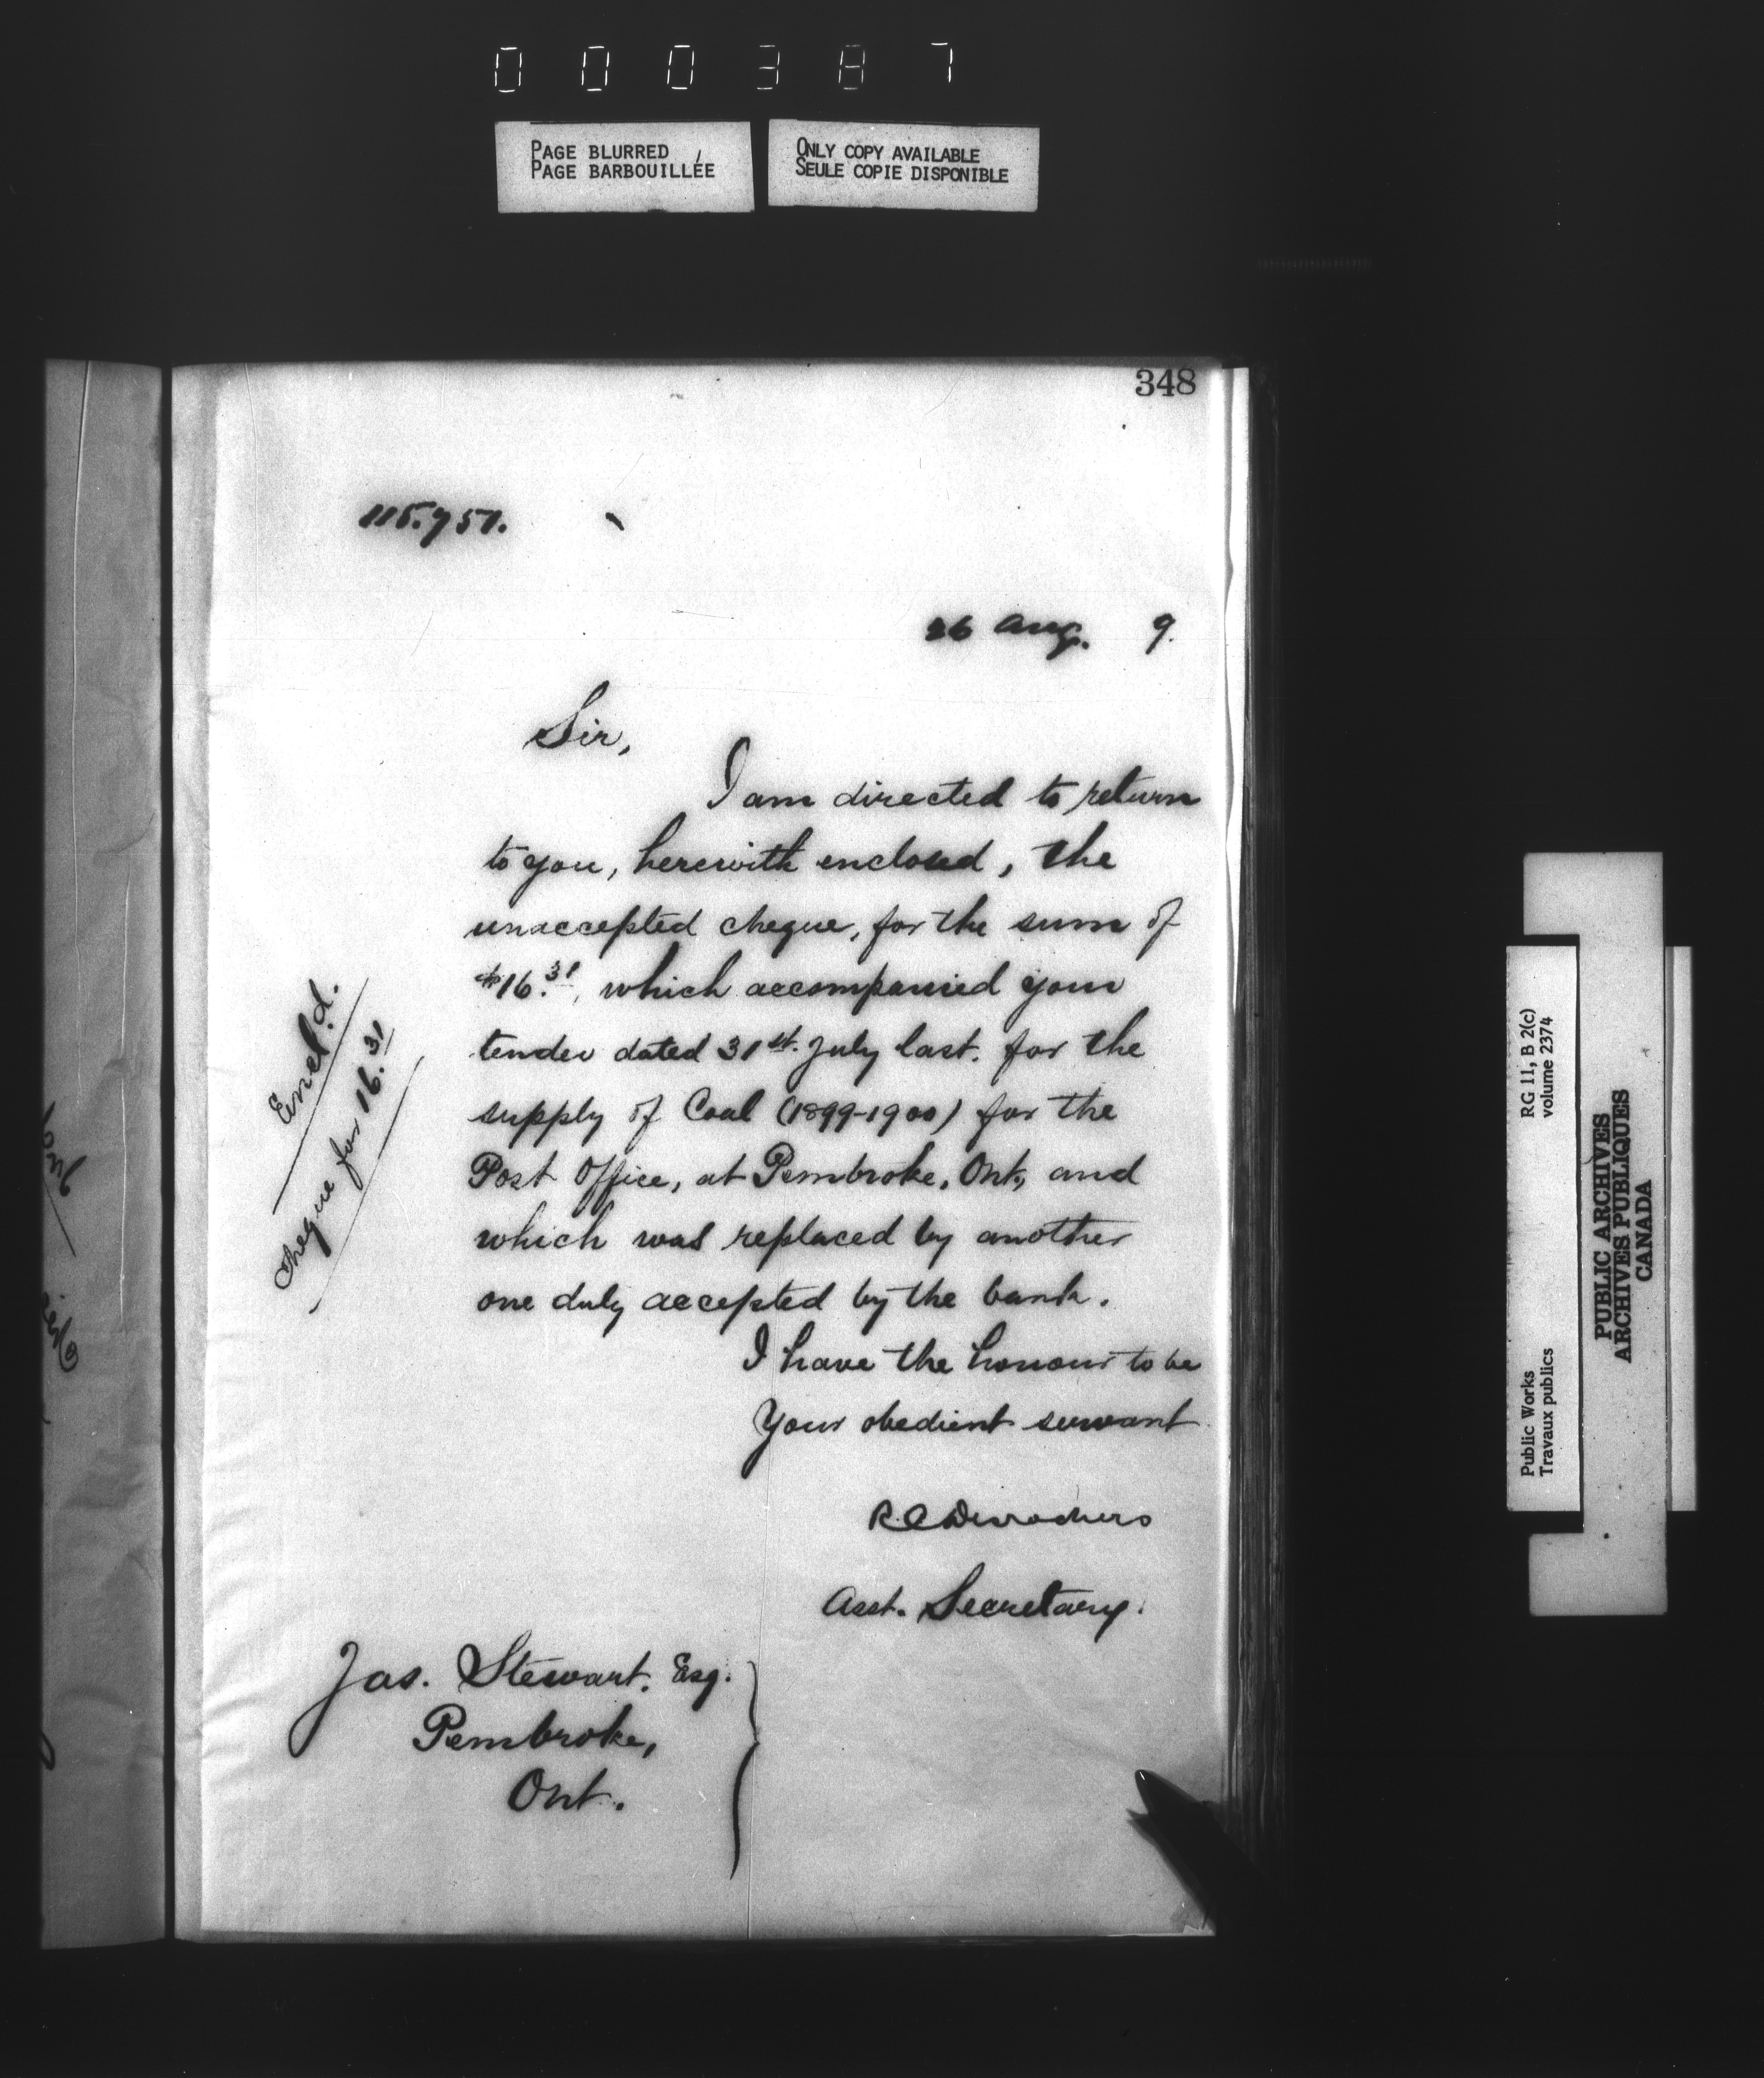 000387
PAGE BLURRED
PAGE BARBOUILLÉE
ONLY COPY AVAILABLE
SEULE COPIE DISPONIBLE
348
115.751.
26 Aug. 9.
Sir,
I am directed to return
to you, herewith enclosed, the
unaccepted cheque, for the sum of
$16.31, which accompanied your
tender dated 31st. July last. for the
supply of Coal (1899-1900) for the
Post Office, at Pembroke, Ont, and
which was replaced by another
one duly accepted by the bank.
I have the honour to be
Your obedient servant
Encl'd.
Cheque for 16.31
Asst. Secretary.
Jas. Stewart. Esq.
Pembroke,
Ont.
RG 11, B 2(c)
volume 2374
Public Works
Travaux publics
PUBLIC ARCHIVES
ARCHIVES PUBLIQUES
CANADA